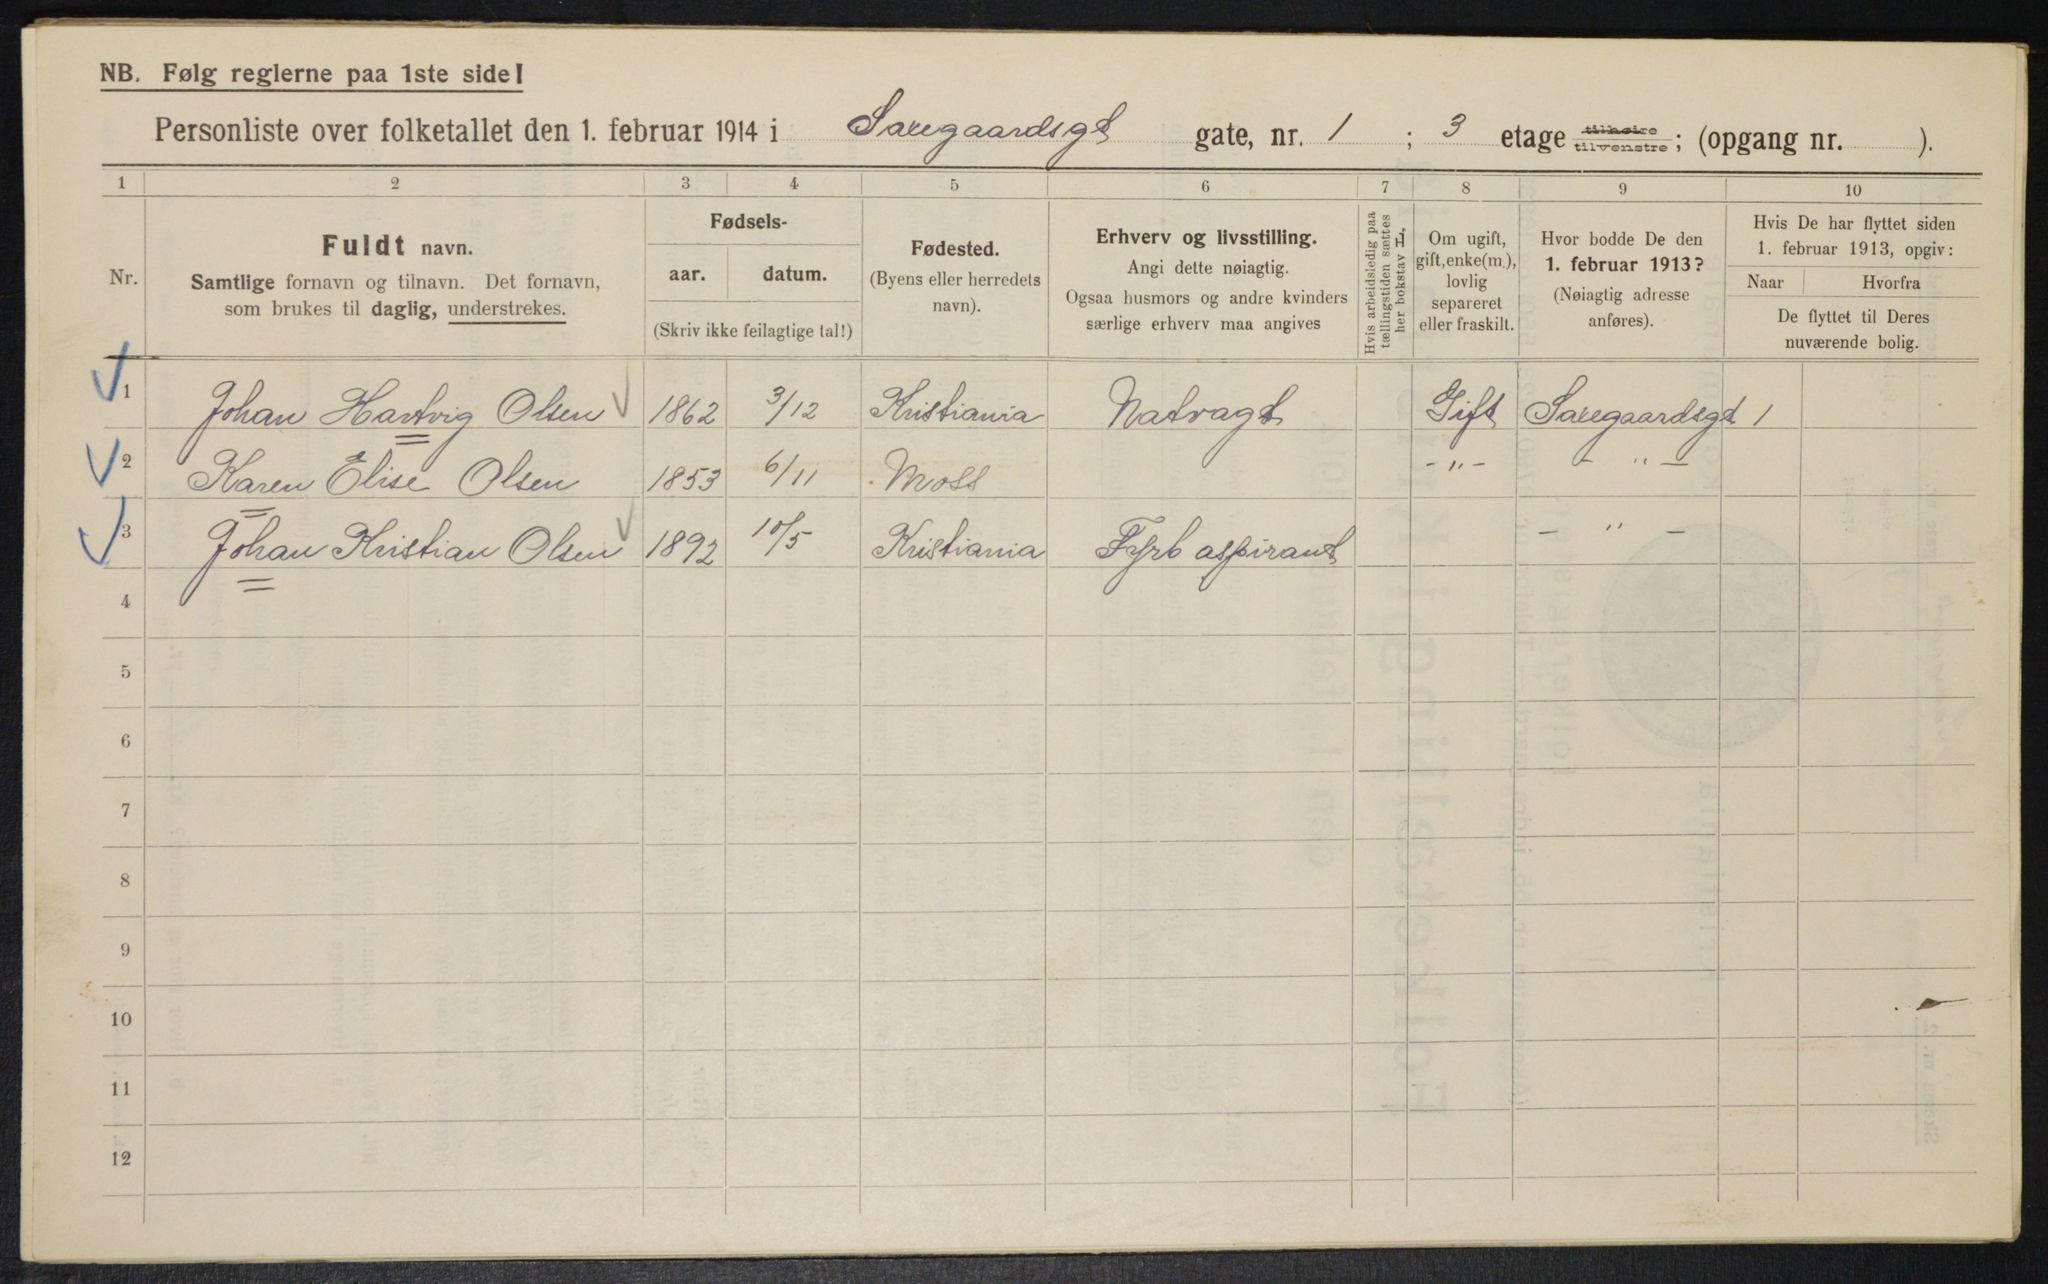 NB. Følg reglerne paa 1ste side!
Personliste over folketallet den 1. februar 1914 i Saxegaardsgt gate, nr. 1 ; 3 etage tilhøire tilvenstre; (opgang nr. ).
1 2 3 4 5 6 7 8 9 10
Nr.
Fuldt navn.
Samtlige fornavn og tilnavn. Det fornavn,
som brukes til daglig, understrekes.
Fødsels-
aar. datum.
(Skriv ikke feilagtige tal!)
Fødested.
(Byens eller herredets
navn).
Erhverv og livsstilling.
Angi dette nøiagtig.
Ogsaa husmors og andre kvinders
særlige erhverv maa angives
Hvis arbeidsledig paa
tællingstiden sættes
her bokstav L,
Om ugift,
gift, enke(m.),
lovlig
separeret
eller fraskilt.
Hvor bodde De den
1. februar 1913?
(Nøiagtig adresse
anføres).
Hvis De har flyttet siden
1. februar 1913, opgiv:
Naar Hvorfra
De flyttet til Deres
nuværende bolig.
1 Johan Hartvig Olsen 1862 3/12 Kristiania Natvagt Gift Saxegaardsgt 1
2 Karen Elise Olsen 1853 6/11 Moss - " - - " -
3 Johan Kristian Olsen 1892 10/5 Kristiania Fyrb aspirant - " -
4
5
6
7
8
9
10
11
12